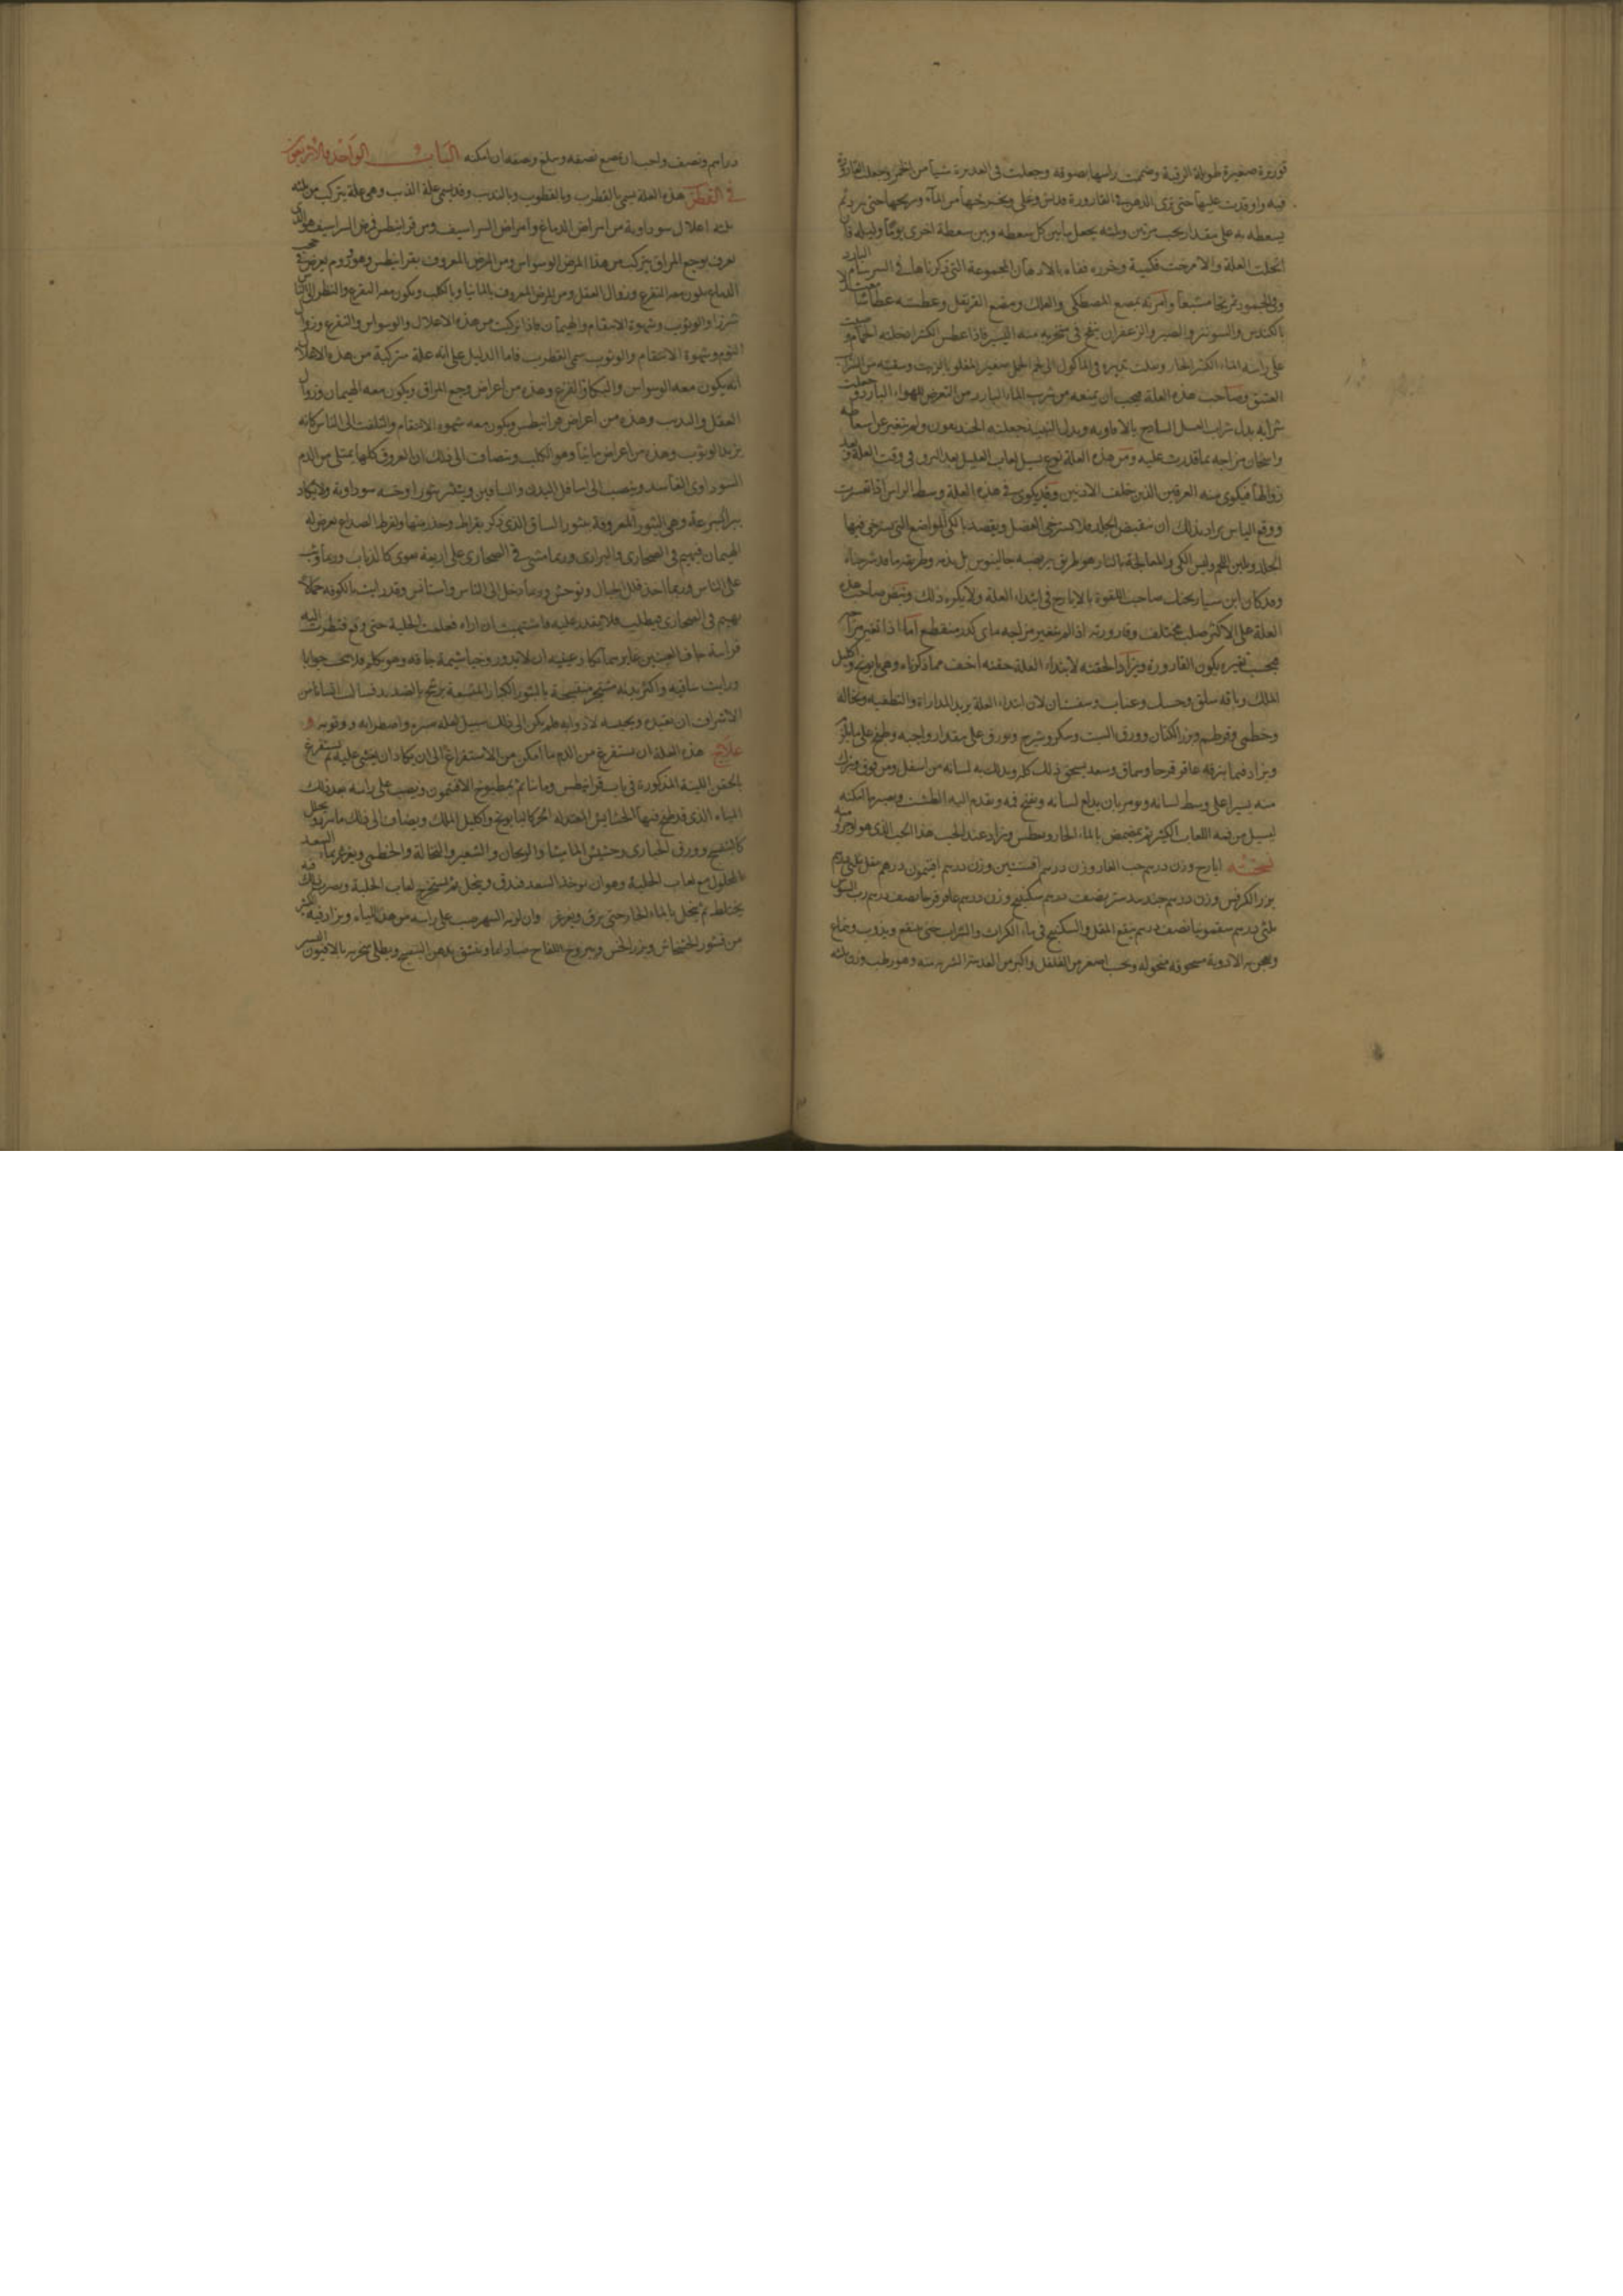 قوريرة صغيرة طويلة الرقبة وضممت راسها بصوفة وجعلت في القديرة شيأ من الخمر وجعلت القارورة
فيه واوقدت عليها حتى ترى الدهن في القارورة قد نش وغلى ويخرجها من الماء ويريحها حتى يبرد ثم
يسعطه به على مقدار يجب مرتين وثلثه يجعل ما بين كل سعطه وبين سعطة اخرى يوما وليلة فان
انحلت العلة والا مرخت فكيه وخرزه وقفاه بالادهان المجموعة التي ذكرناها في السرسام البارد
وفي الجمود تمريخا مشبعا وامرته بمضغ المصطكى والعلك ومضغ القرنفل وعطسته عطاسا معتدلا
بالكندس والشونيز والصبر والزعفران ينفخ في منخريه منه اليسير فاذا عطس اكثر ادخلته الحمام وصببت
على راسه الماء الكثير الحار وملت بتدبيره في الماكول الى لحم الحمل صغير المقلو بالزيت وسقيته من الشراب
العتيق وصاحب هذه العلة يجب ان يمنعه من شرب الماء البارد من التعرض للهواء البارد وجعلت
شرابه بدل شراب العسل الساذج بالافاويه وبدل النبيذ جعلته الخنديقون ولم تتغير عن اسعاطه
واسخان مزاجه بما قدرت عليه ومن هذه العلة نوع يسيل لعاب العليل بعد البرو في وقت العلة بعد
زوالها فيكوى منه العرقين الذين خلف الاذنين وقد يكوى في هذه العلة وسط الراس اذا تعسرت
ووقع الياس يراد بذلك ان ينقبض الجلد فلا يسترخي العضل ويقصد بالكى المواضع التي يسترخي فيها
الجلد ويلين اللحم وليس الكى والمعالجة بالنار هو طريق يرتضيه جالينوس بل يذمه وطريقه ما قد شرحناه
وقد كان ابن سيار يحنك صاحب اللقوة بالايارج في ابتداء العلة ولا يكره ذلك ونبض صاحب هذه
العلة على الاكثر صلب مختلف وقارورته اذا لم يتغير مزاجه مائي كدر منقطع اما اذا تغير مزاجه
فبحسب تغيره يكون القارورة ويزاد الحقنه لابتداء العلة حقنه اخف مما ذكرناه وهي بابونج واكليل
الملك وباقة سلق وحسك وعناب وسفستان لان ابتداء العلة يريد المداراة والتطفيه ونخالة
وخطمى وقرطم وبزر الكتان وورق الشبت وسكر وشيرج وبورق على مقدار واجبه وطبخ على
ويزاد فيما يغرغر به عاقر قرحا وسماق وسعد يسحق ذلك كله ويدلك به لسانه من اسفل ومن فوق ويترك
منه يسيرا على وسط لسانه ويومر بان يدلع لسانه ويفتح فمه ويقدم اليه الطشت ويصبر ما امكنه
ليسيل من فمه اللعاب الكثير ثم يمضمض بالماء الحار ويعطس ويزاد عند الحب هذا الحب الذي هو
نسخته ايارج وزن درهم حب الغار وزن درهم افسنتين وزن درهم افتيمون درهم مقل ثلثي درهم
بزر الكرفس وزن درهم جندبيدستر نصف درهم سكبينج وزن درهم عاقر قرحا نصف درهم رب السوس
ثلثي درهم سقمونيا نصف درهم ينقع المقل والسكبينج في ماء الكراث والشراب حتى ينقع ويذوب ويماع
ويعجن به الادوية مسحوقه منخوله ويحبب اصغر من الفلفل واكبر من العدس الشربه منه وهو رطب وزن ثلثه
دراهم ونصف واحب ان يمضغ نصفه ويبلع نصفه ان امكنه الباب الواحد والاربعون
في القطرب هذه العلة تسمى القطرب وبالقطوب وبالتدب وقد يسمى علة الذئب وهي علة يتركب من ثلثه
ثلثه اعلال سوداوية من امراض الدماغ وامراض الشراسيف ومن قرانيطس فمرض الشراسيف هو الذي
يعرف بوجع المراق يتركب من هذا المرض الوسواس ومن المرض المعروف بقرانيطس وهو ورم يعرض في حجب
الدماغ يكون معه التفزع وزوال العقل ومن المرض المعروف بالمانيا وبالكلب ويكون معه التفزع والنظر الى الناس
شزرا والوثوب وشهوة الانتقام والهيمان فاذا تركبت من هذه الاعلال والوسواس والتفزع وزوال
النوم وشهوة الانتقام والوثوب سمى القطرب فاما الدليل على انه علة متركبة من هذه الاعلال
انه يكون معه الوسواس والبكا والفزع وهذه من اعراض وجع المراق ويكون معه الهيمان وزوال
العقل والتدب وهذه من اعراض قرانيطس ويكون معه شهوة الانتقام والتلفت الى الناس كانه
يريد الوثوب وهذه من اعراض مانيا وهو الكلب وينضاف الى ذلك ان العروق كلها يمتلى من الدم
السوداوى الفاسد وينصب الى اسافل البدن والساقين وينتثر بثورا وخشه سوداوية ولا يكاد
يبرا بسرعة وهي البثور المعروفة ببثور الساق الذي ذكر بقراط وحذر منها ولفرط الصداع يعرض له
الهيمان فيهيم في الصحارى والبرارى وربما مشى في الصحارى على اربعة يعوى كالذياب وربما وثب
على الناس وربما اخذ قلل الجبال وتوحش وربما دخل الى الناس واستانس وقد رايت بالكوفة حمالا
يهيم في الصحارى فيطلب فلا يقدر عليه فاشتهيت ان اراه فعملت الحيلة حتى وقع فنظرت اليه
فرايته جاف العينين غاير هما وعينيه ان لا يدور وخياشيمه جافه وهو يكلم فلا يجيب جوابا
ورايت ساقيه واكثر بدنه متشجر متقيحة بالبثور الكبار المتشعبة يرشح بالصديد فسالت انسانا من
الاشراف ان يقيده ويحبسه لاداويه فلم يكن الى ذلك سبيل لقلة صبره واضطرابه ووثوبه
علاج هذه العلة ان يستفرغ من الدم ما امكن من الاستفراغ الى ان يكاد ان يغشى عليه ثم يستفرغ
بالحقن اللينة المذكورة في باب قرانيطس ومانيا ثم بمطبوخ الافتيمون ويصب على راسه بعد ذلك
المياه الذي قد طبخ فيها الحشايش المعتدلة الحر كالبابونج واكليل الملك ويضاف الى ذلك ما يبرد ويحلل
كالبنفسج وورق الخبازى وحشيش الماميثا والريحان والشعير والنخالة والخطمى ويغرغر بماء السعد
المحلول مع لعاب الحلبة وهو ان يوخذ السعد فيدق وينخل ثم يستخرج لعاب الحلبة ويضرب فيه ذلك
يختلط ثم يحل بالماء الحار حتى يرق ويغرغر وان لزمه السهر صب على راسه من هذه المياه ويزاد فيه
من قشور الخشخاش وبزر الخس ويبروح اللفاح صبا دايما وينشق بدهن البنفسج ويطلى منخريه بالافيون اليسير